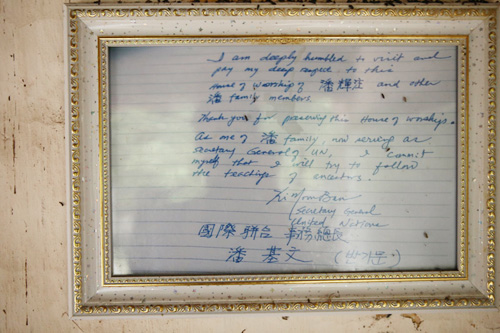 I am deeply humbled to visit and
pay my deep respect to this
House of Worship of 潘輝注 and other
潘 family members.
Thank you for preserving this House of worship.
As one of 潘 family, now serving as
Secretary General of UN, I commit
myself that I will try to follow
the teachings of ancestors.
Ki Moon Ban
(Secretary General
United Nations
國際聯合 事務總長
潘 基 文 (반기문)